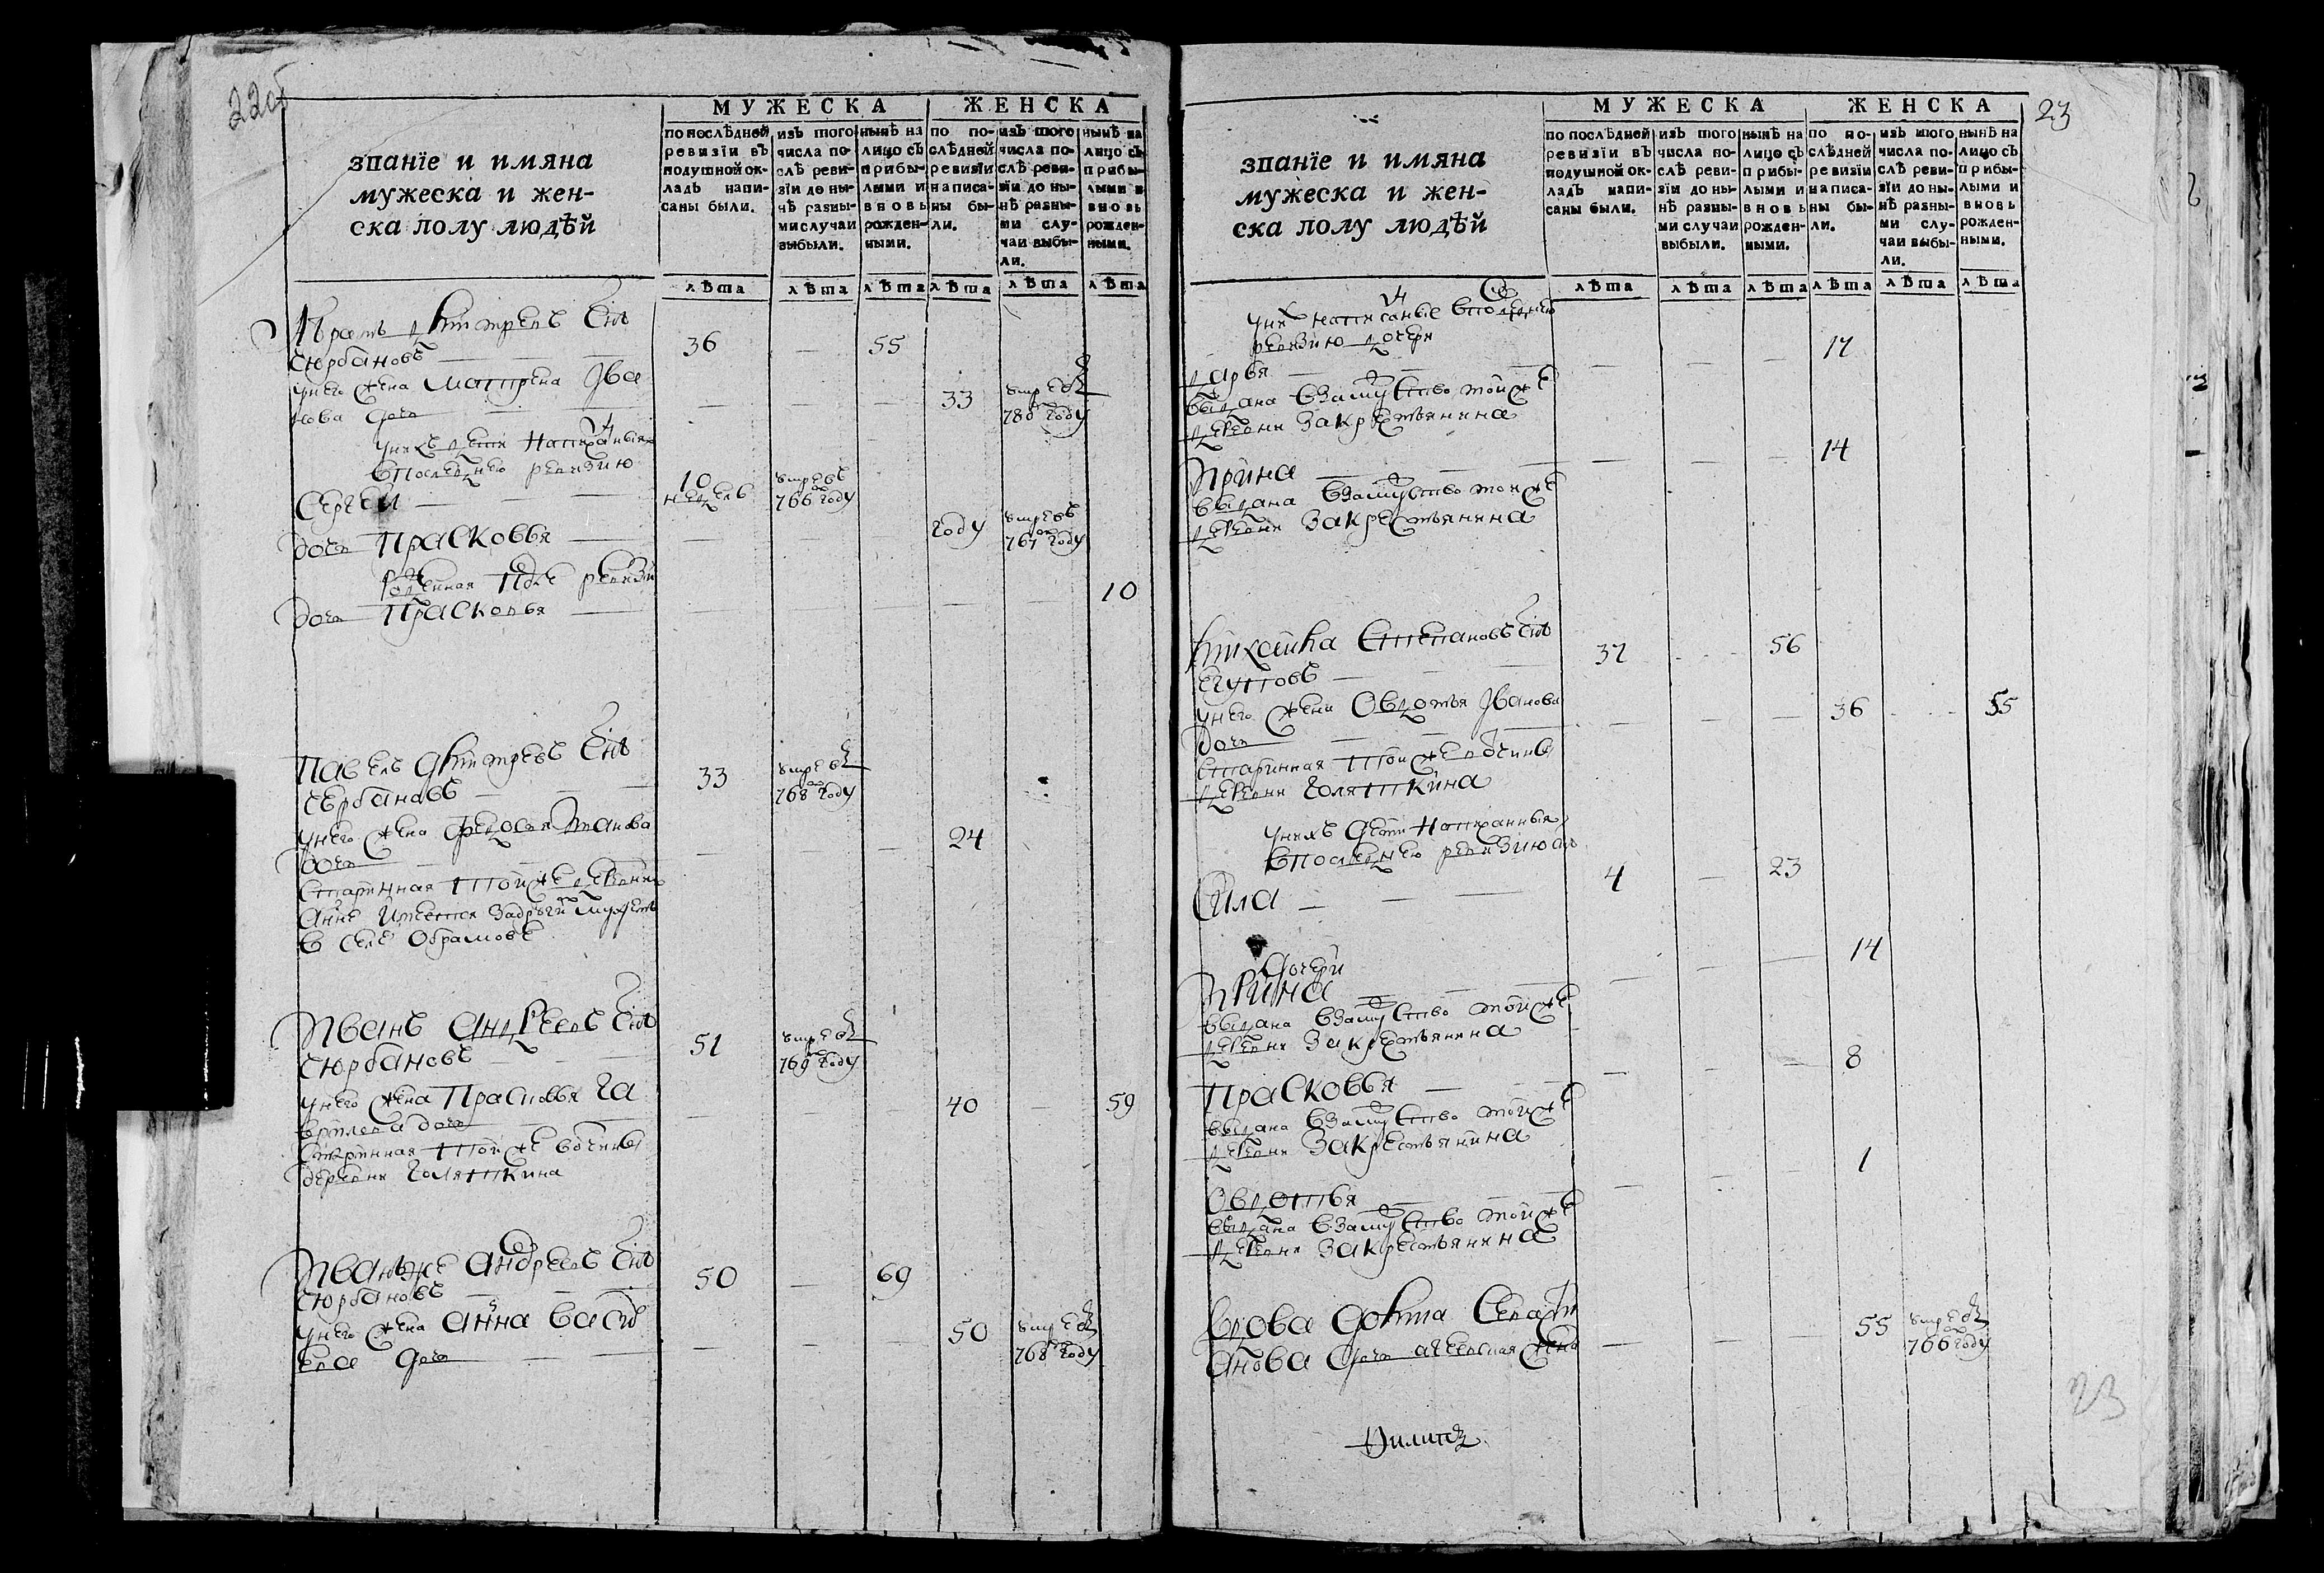 22об
МУЖЕСКА
ЖЕНСКА
званїе и имяна
мужеска и жен-
ска полу людѣй
по послѣдней
ревизїи въ
подушной ок-
ладъ напи-
саны были.
изъ того
числа по-
слѣ реви-
зїи до ны-
нѣ разны-
ми случаи
выбыли.
нынѣ на
лицо съ
прибы-
лыми и
вновь
рожден-
ными.
по по-
слѣдней
ревизїи
написа-
ны бы-
ли.
изъ того
числа по-
слѣ реви-
зїи до ны-
нѣ разны-
ми слу-
чаи выбы-
ли.
нынѣ на
лицо съ
прибы-
лыми и
вновь
рожден-
ными.
лѣта лѣта лѣта лѣта лѣта лѣта
Дмитревъ Снъ
36 — 55
унего жена Матрена Ива
нова дочь 33 умре въ
780 году
унихъ дети написаныя
впоследнюю ревизию
Сергеи — 10 недель умре въ 766 году
дочь Прасковья — году умре въ 767 году
рожденная после ревизи
дочь Прасковья — 10
Павелъ Дмитревъ Снъ
33 умре въ
768 году
унего жена Федосья
дочь — 24
старинная тои же деревни
а ныне имеется задругим мужем
в селе Обрамове
Иванъ Андреевъ Снъ
Сюрбановъ — 51 умре въ
769 году
унего жена Прасковья Га
врилова дочь — 40 — 59
старинная тои же вотчины
деревни Голяткина
Иванъ же Андреевъ Снъ
Сюрбановъ — 50 — 69
унего жена Анна Васил
ева дочь — 50 умре въ
768 году
23
МУЖЕСКА
ЖЕНСКА
званїе и имяна
мужеска и жен-
ска полу людѣй
по послѣдней
ревизїи въ
подушной ок-
ладъ напи-
саны были.
изъ того
числа по-
слѣ реви-
зїи до ны-
нѣ разны-
ми случаи
выбыли.
нынѣ на
лицо съ
прибы-
лыми и
вновь
рожден-
ными.
по по-
слѣдней
ревизїи
написа-
ны бы-
ли.
изъ того
числа по-
слѣ реви-
зїи до ны-
нѣ разны-
ми слу-
чаи выбы-
ли.
нынѣ на
лицо съ
прибы-
лыми и
вновь
рожден-
ными.
лѣта лѣта лѣта лѣта лѣта лѣта
уних написаные впоследнею
ревизию дочери
Дарья — 17
выдана взамужство тойже
деревни закрестьянина
Ирина — 14
выдана взамужство тойже
деревни закрестьянина
Михаила Степановъ Снъ
37 — 56
унего жена Овдотья Иванова
дочь — 36 — 55
старинная тои же вотчины
деревни Голяткина
унихъ дети написанныя
впоследнею ревизию
Сила — 4 — 23
дочери
Ирина — 14
выдана взамужство тойже
деревни закрестьянина
Прасковья — 8
выдана взамужство тойже
деревни закрестьянина
Овдотья — 1
выдана взамужство тойже
деревни закрестьянина
Вдова
дочь жена — 55 умре въ
766 году
23